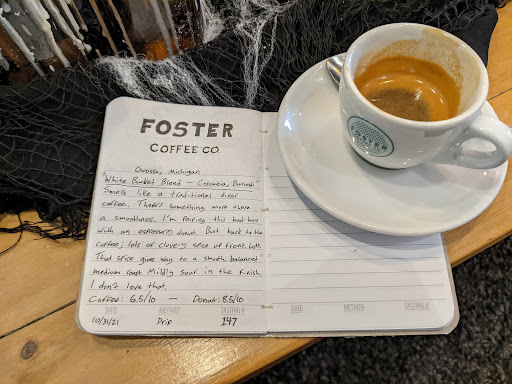 FOSTER
COFFEE CO.
Owosso, Michigan
"White Bucket Blend — Colombia, Burundi"
Smells like a traditional diner
coffee. There's something more there
a smoothness. I'm pairing this bad boy
with an espresso donut. But back to the
coffee; lots of clove-y spice up front, both.
That spice gives way to a smooth balanced
medium roast. Mildly sour in the finish.
I don't love that.
Coffee: 6.5/10 — Donut: 8.5/10
DATE METHOD TASTING #
10/31/21 Drip 147
DATE METHOD TASTING #